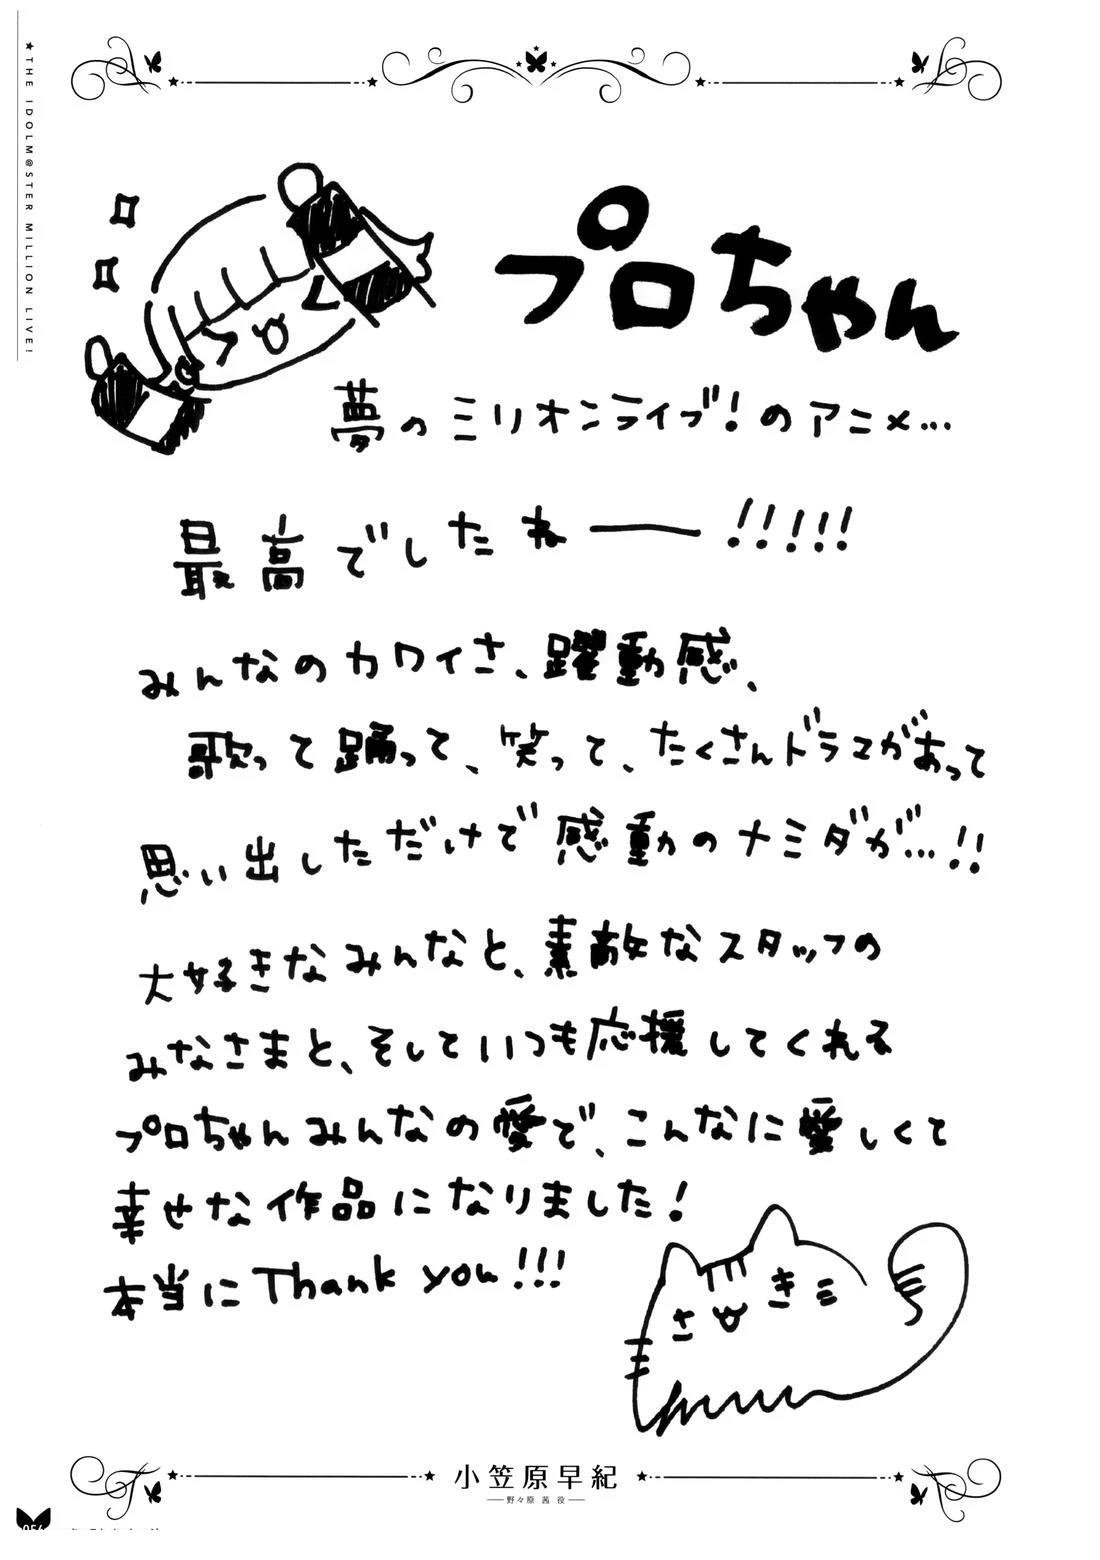 ★THE IDOLM@STER MILLION LIVE!
プロちゃん
夢のミリオンライブ!のアニメ…
最高でしたねー!!!!!
みんなのカワイさ、躍動感、
歌って踊って、笑って、たくさんドラマがあって
思い出しただけで感動のナミダが…!!
大好きなみんなと、素敵なスタッフの
みなさまと、そしていつも応援してくれる
プロちゃんみんなの愛で、こんなに愛しくて
幸せな作品になりました!
本当にThank you!!!
さき
小笠原早紀
野々原 茜 役